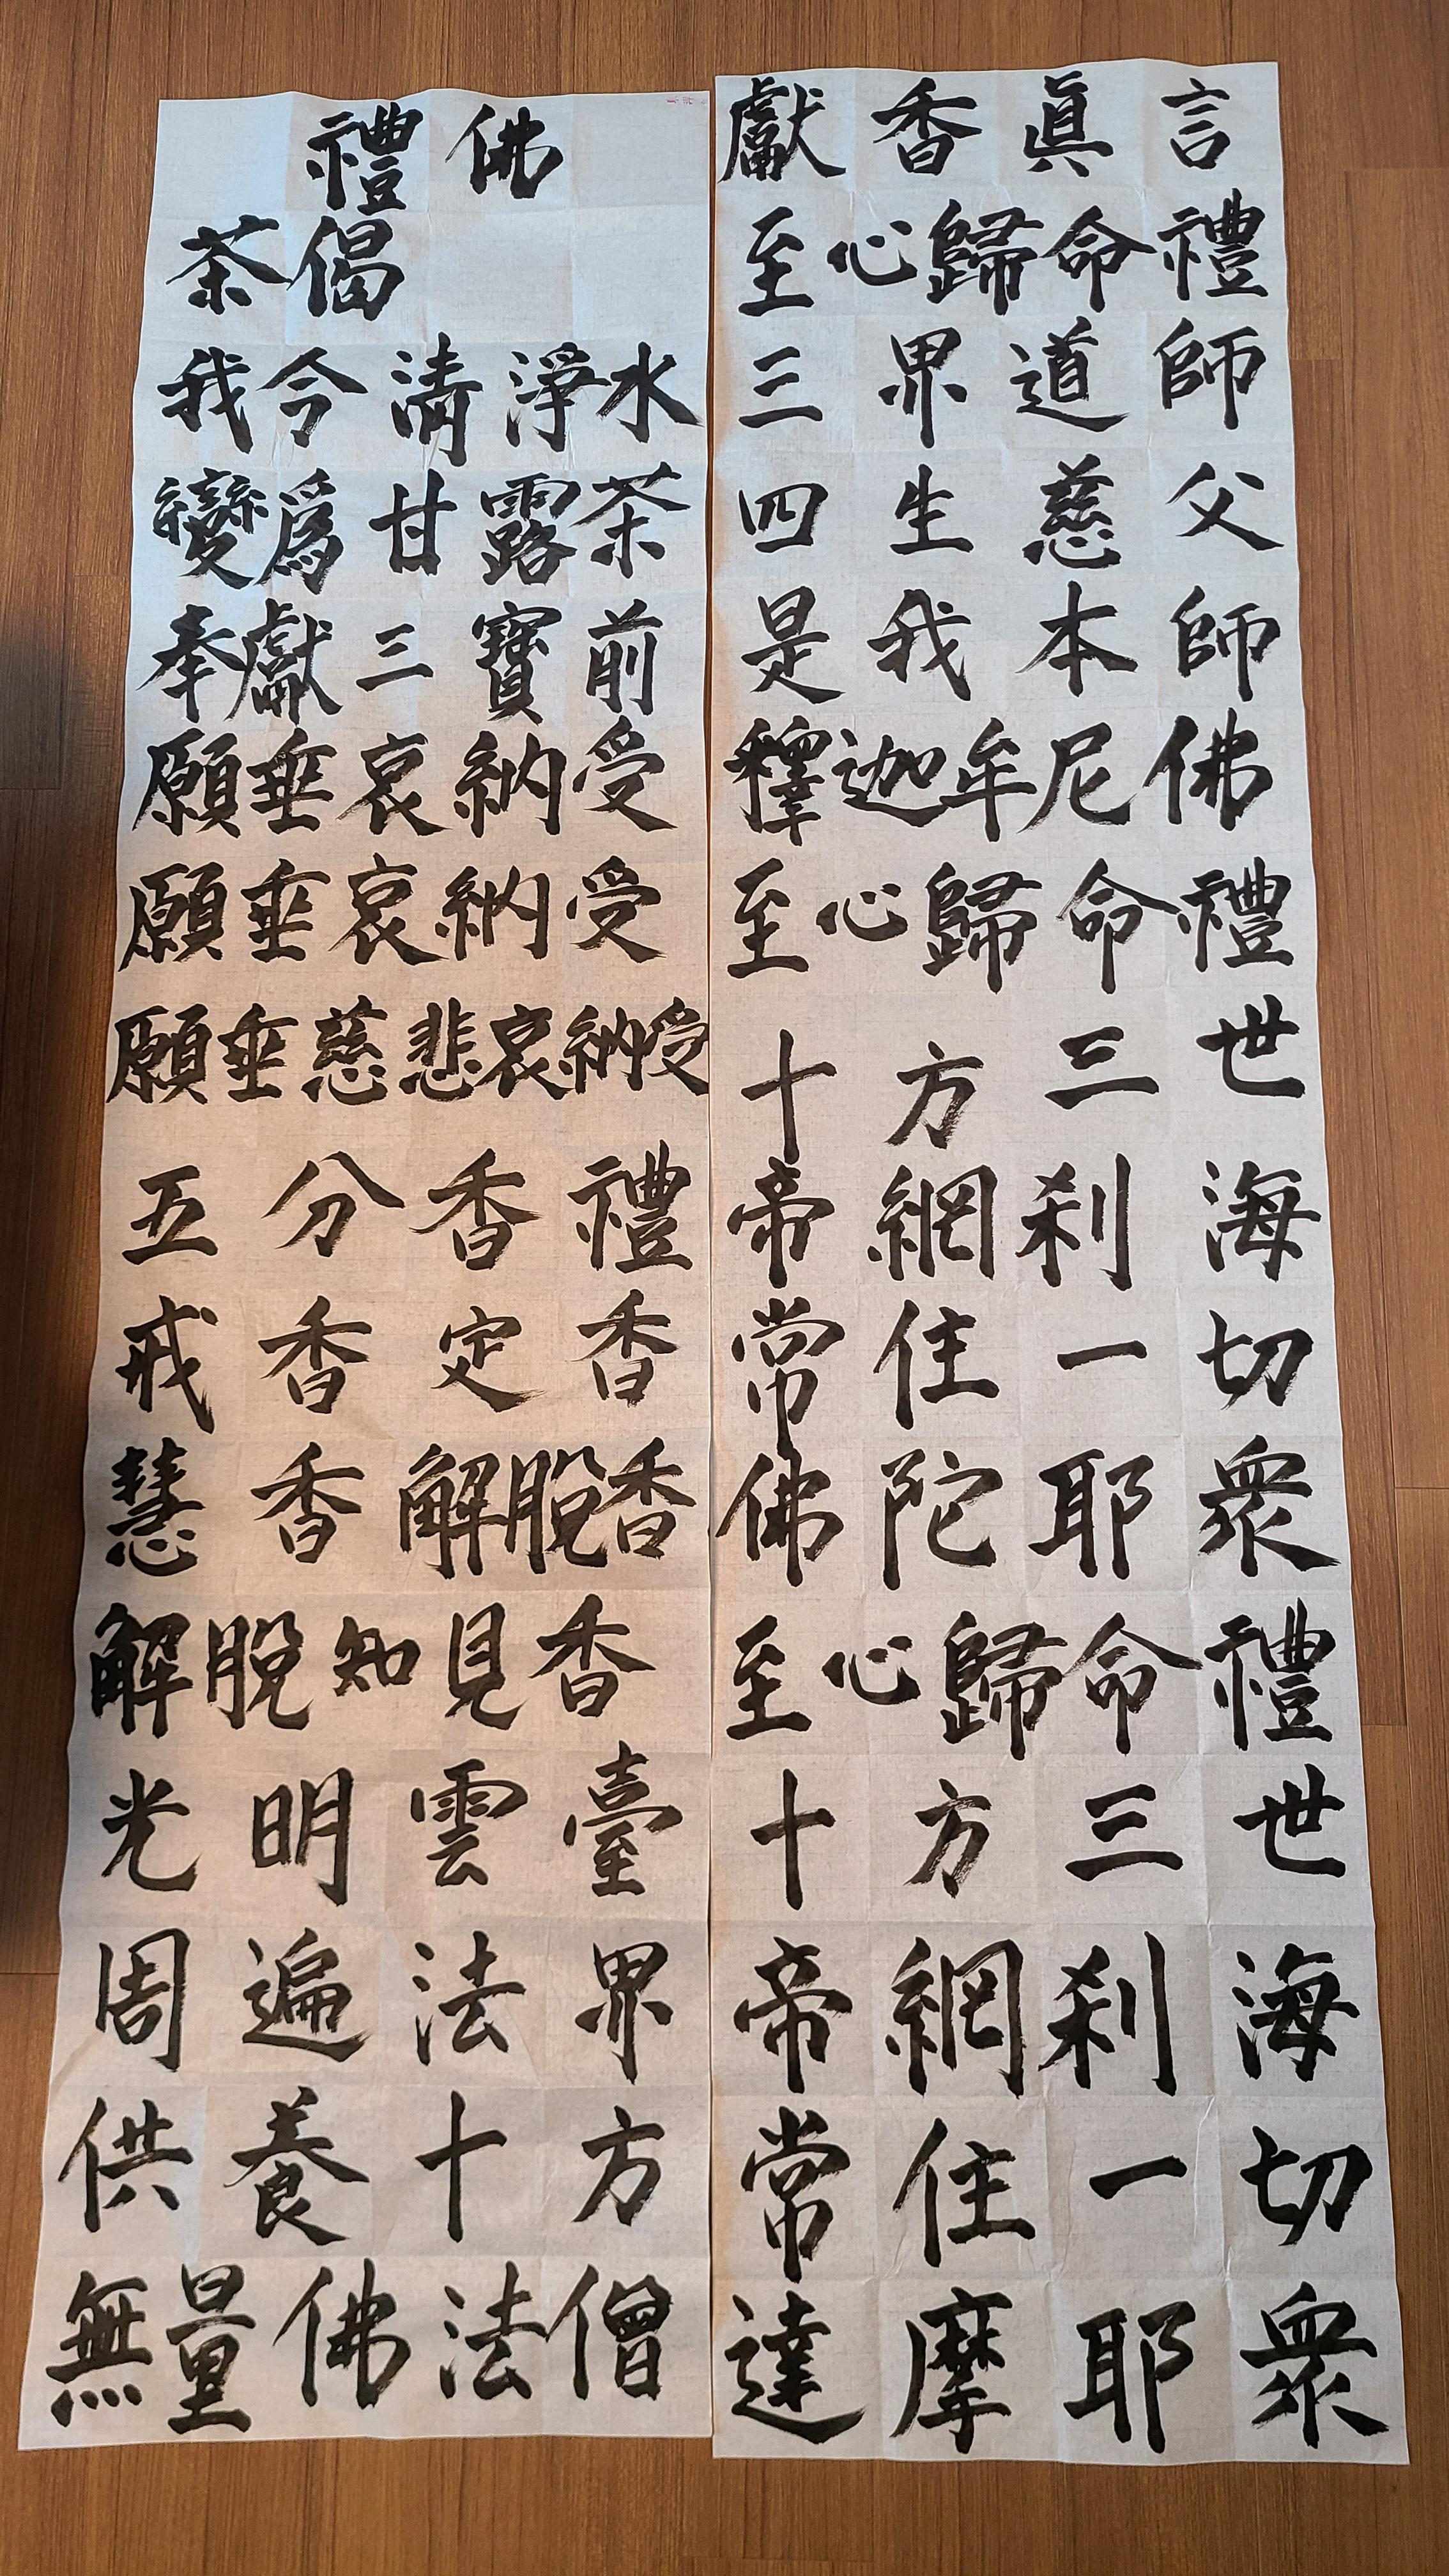 禮佛
茶偈
我今清淨水
變爲甘露茶
奉獻三寶前
願垂哀納受
願垂哀納受
願垂慈悲哀納受
五分香禮
戒香定香
慧香解脫香
解脫知見香
光明雲臺
周遍法界
供養十方
無量佛法僧
獻香眞言
至心歸命禮
三界道師
四生慈父
是我本師
釋迦牟尼佛
至心歸命禮
十方三世
帝網刹海
常住一切
佛陀耶衆
至心歸命禮
十方三世
帝網刹海
常住一切
達摩耶衆